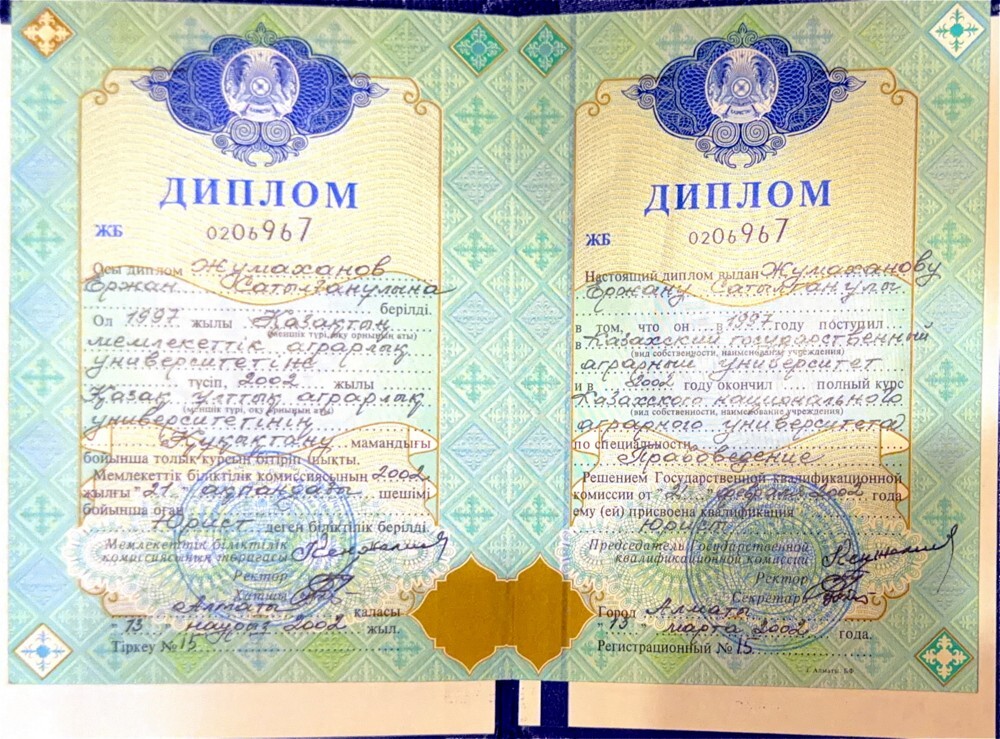 ДИПЛОМ
ЖБ 0206967
Осы диплом Жумаханов
Ержан Сатылғанулына
берілді.
Ол 1997 жылы Қазақтың
(меншік түрі, оқу орнының аты)
мемлекеттік аграрлық
университетіне
түсіп, 2002 жылы
Қазақ ұлттық аграрлық
(меншік түрі, оқу орнының аты)
университетінің
Құқықтану мамандығы
бойынша толық курсын бітіріп шықты.
Мемлекеттік біліктілік комиссиясының 2002
жылғы "21" ақпандағы шешімі
бойынша оған
Юрист деген біліктілік берілді.
Мемлекеттік біліктілік
комиссиясының төрағасы
Ректор
Хатшы
Алматы қаласы
"13" наурыз 2002 жыл.
Тіркеу № 15
ДИПЛОМ
ЖБ 0206967
Настоящий диплом выдан Жумаханову
Ержану Сатылганулы
в том, что он в 1997 году поступил
в Казахский государственный
(вид собственности, наименование учреждения)
аграрный университет
и в 2002 году окончил полный курс
Казахского национального
(вид собственности, наименование учреждения)
аграрного университета
по специальности
Правоведение
Решением Государственной квалификационной
комиссии от "21" февраля 2002 года
ему (ей) присвоена квалификация
Юрист
Председатель Государственной
квалификационной комиссии
Ректор
Секретарь
Город Алматы
"13" марта 2002 года.
Регистрационный № 15
г. Алматы. БФ.